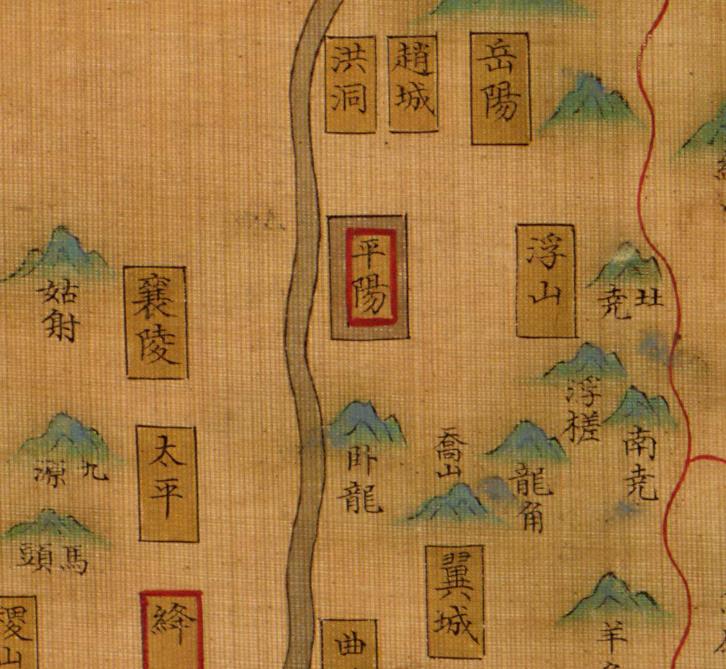 岳陽
趙城
洪洞
浮山
平陽
襄陵
姑射
浮槎
南尭
卧龍
喬山
龍角
太平
九源
馬頭
翼城
絳
曲
稷山
羊